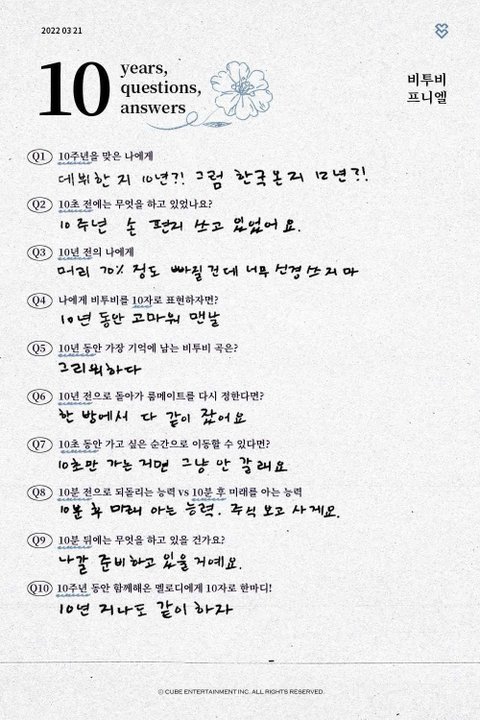 2022 03 21
10
years,
questions,
answers
비투비
프니엘
Q1 10주년을 맞은 나에게
데뷔한 지 10년?! 그럼 한국온지 12년?!
Q2 10초 전에는 무엇을 하고 있었나요?
10주년 손 편지 쓰고 있었어요.
Q3 10년 전의 나에게
머리 70% 정도 빠질건데 너무 신경쓰지마
Q4 나에게 비투비를 10자로 표현하자면?
10년 동안 고마워 맨날
Q5 10년 동안 가장 기억에 남는 비투비 곡은?
그리워하다
Q6 10년 전으로 돌아가 룸메이트를 다시 정한다면?
한 방에서 다 같이 잤어요
Q7 10초 동안 가고 싶은 순간으로 이동할 수 있다면?
10초만 가는거면 그냥 안 갈래요
Q8 10분 전으로 되돌리는 능력 vs 10분 후 미래를 아는 능력
10분 후 미래 아는 능력. 주식 보고 사게요.
Q9 10분 뒤에는 무엇을 하고 있을 건가요?
나갈 준비하고 있을거예요.
Q10 10주년 동안 함께해온 멜로디에게 10자로 한마디!
10년 지나도 같이 하자
© CUBE ENTERTAINMENT INC. ALL RIGHTS RESERVED.